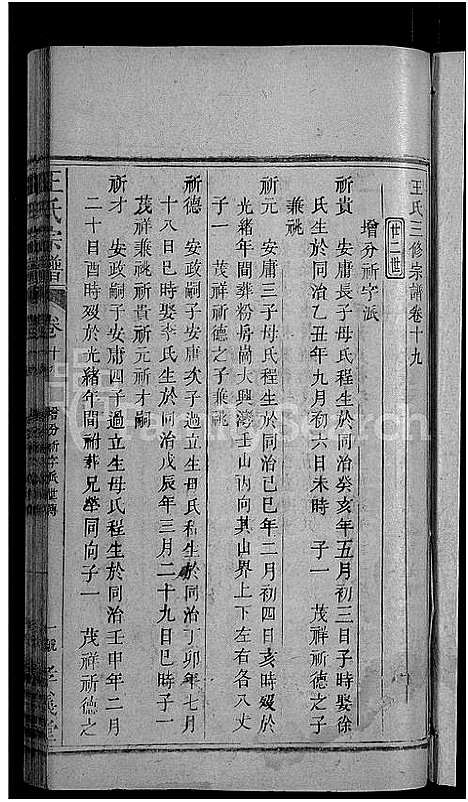 王氏三修宗譜卷十九
廿二世
增分祈字派
祈貴　安庸長子母氏程生於同治癸亥年五月初三日子時娶徐
氏生於同治乙丑年九月初六日未時　子一　茂祥祈德之子
兼祧
祈元　安庸三子母氏程生於同治己巳年二月初四日亥時歿於
光緒年間葬粉房崗大興灣壬山丙向其山界上下左右各八丈
子一　茂祥祈德之子兼祧
祈德　安政嗣子安庸次子過立生母氏程生於同治丁卯年七月
十八日巳時娶李氏生於同治戊辰年三月二十九日巳時子一
茂祥兼祧祈貴祈元祈才嗣
祈才　安政嗣子安庸四子過立生母氏程生於同治壬申年二月
二十日酉時歿於光緒年間祔葬兄塋同向子一　茂祥祈德之
王氏宗譜
卷十九
增分祈字派世傳
一號